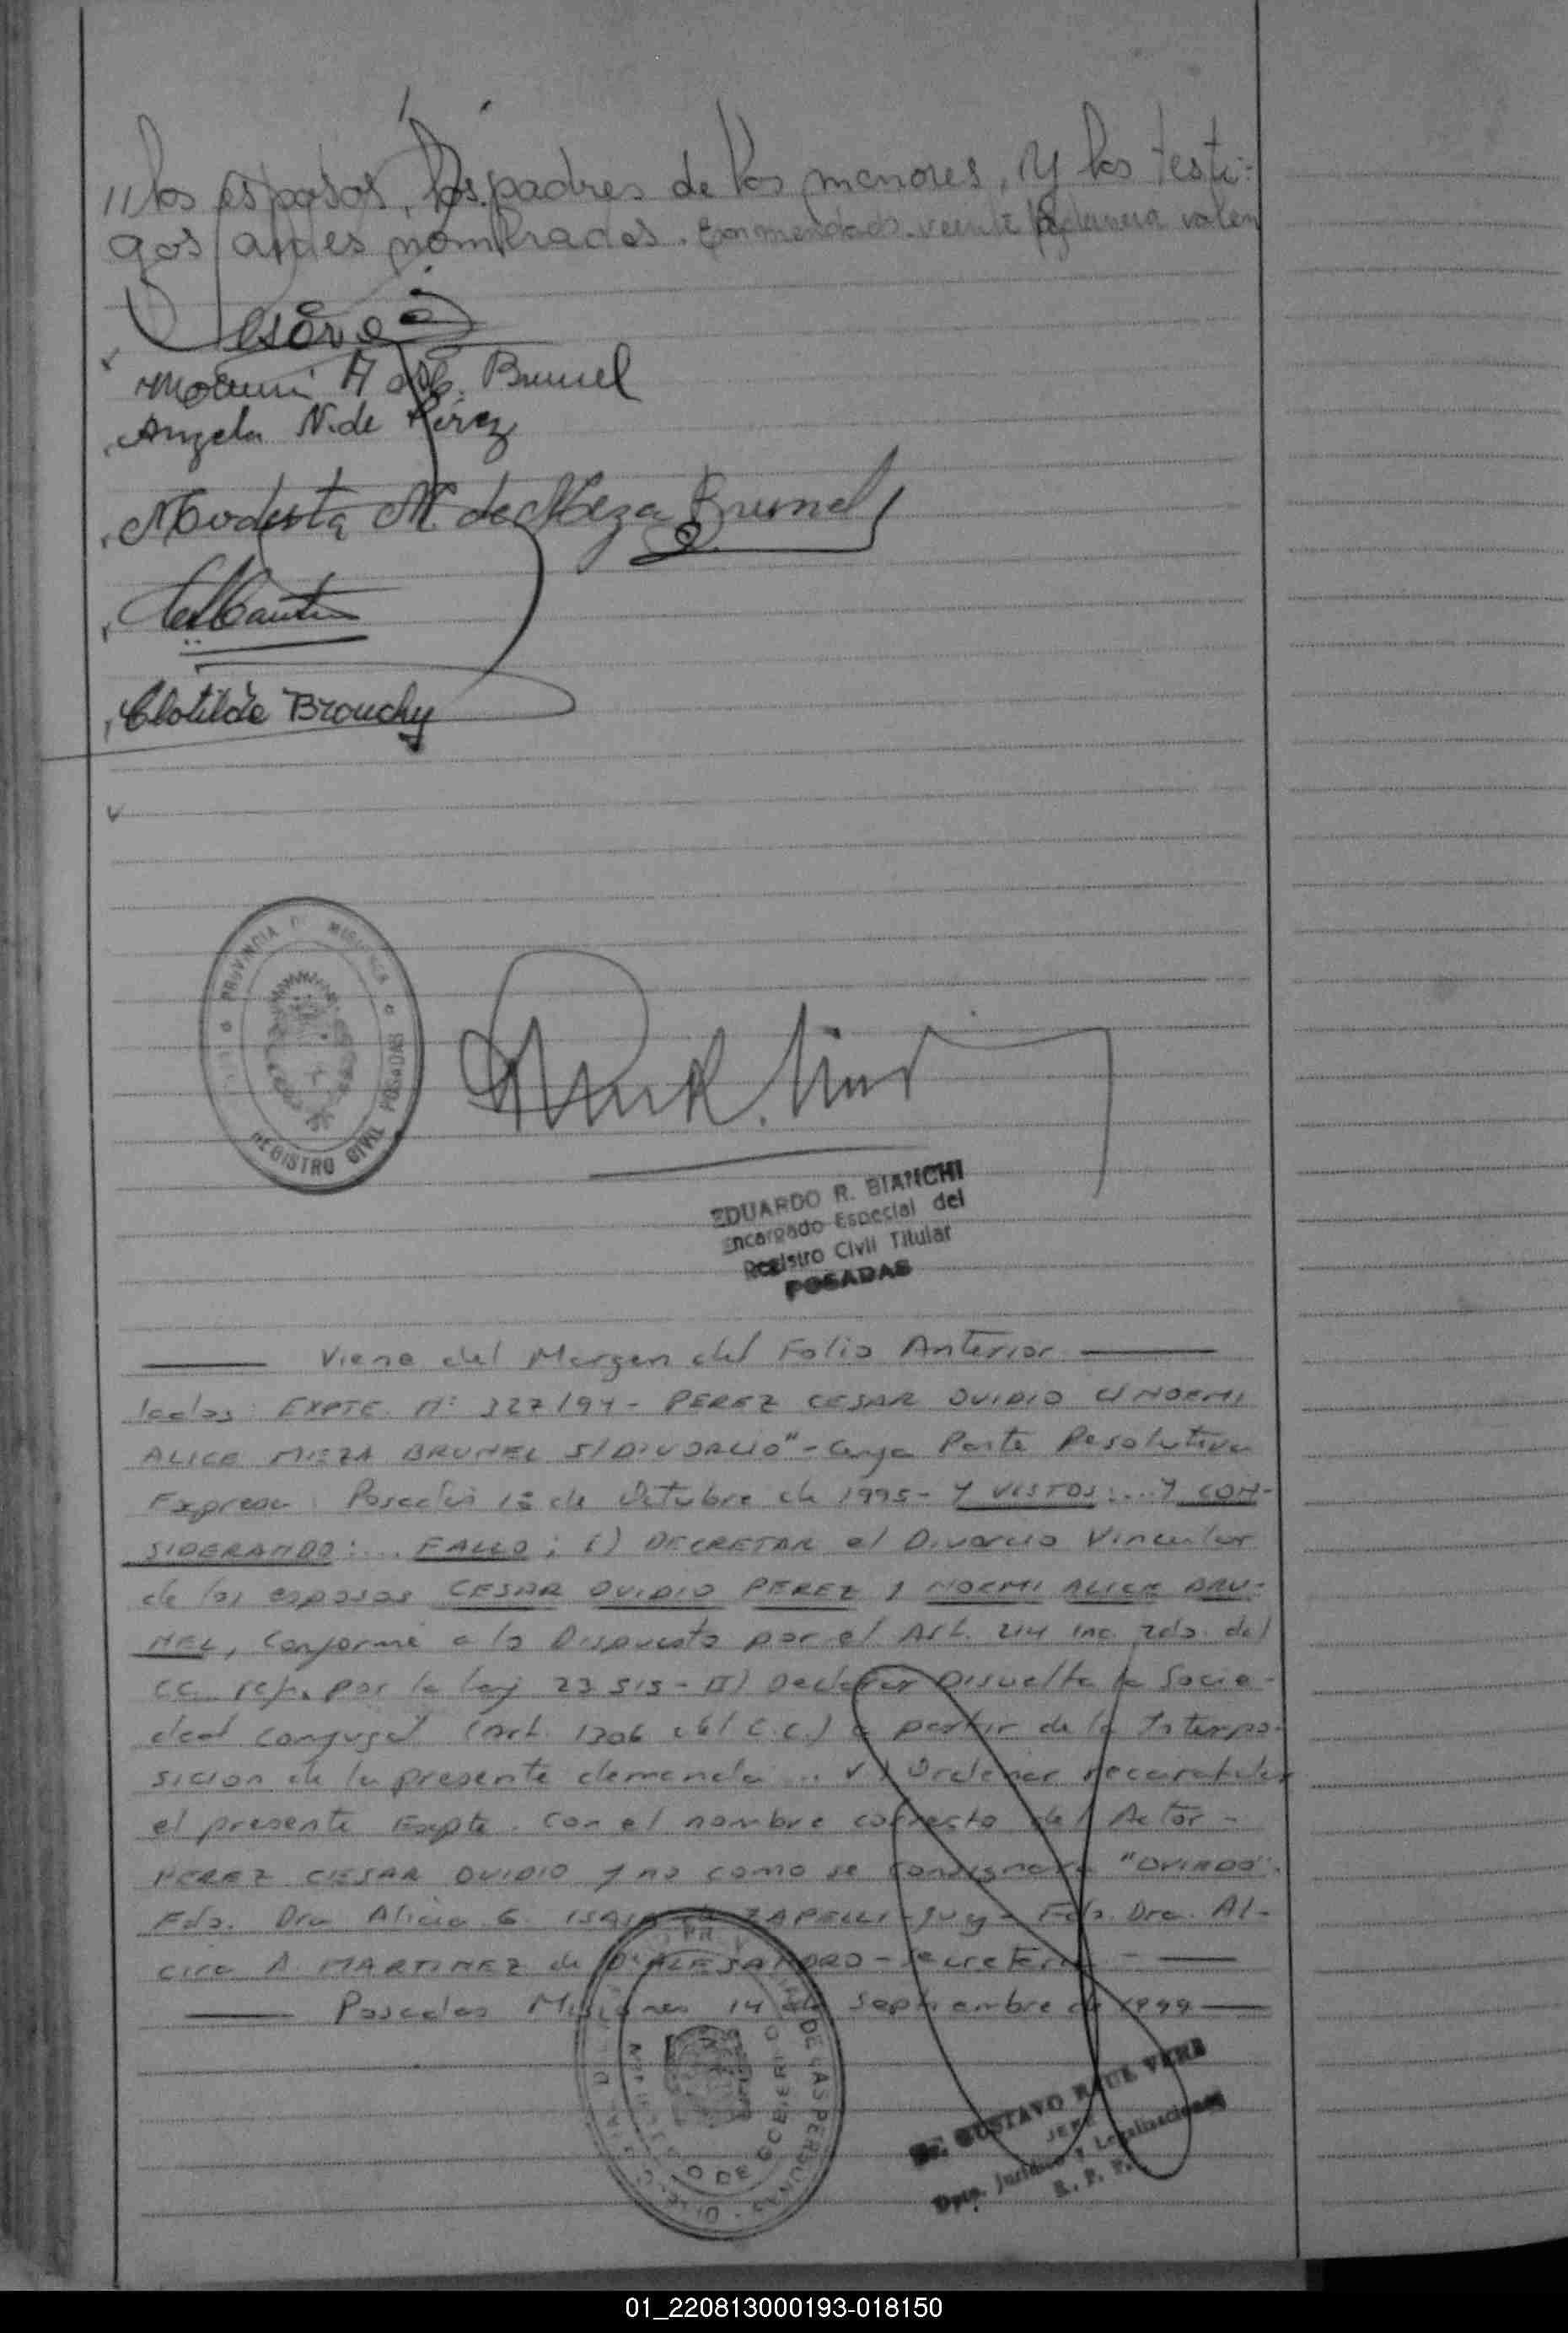 //los esposos, los padres de los menores, y los testi-
gos antes nombrados. Enmendado valen
Angela N. de Pérez
Modesta M. de Meza Brunel
Clotilde Brouchy
PROVINCIA DE MISIONES
REGISTRO CIVIL POSADAS
EDUARDO R. BIANCHI
Encargado Especial del
Registro Civil Titular
POSADAS
Viene del Margen del Folio Anterior
lados: EXPTE. Nº 327/94 - PEREZ CESAR OVIDIO C/ NOEMI
ALICE MEZA BRUNEL S/ DIVORCIO" - Cuya Parte Resolutiva
Expresa: Posadas de Octubre de 1995 - Y VISTOS: ... Y CON-
SIDERANDO: ... FALLO: I) DECRETAR el Divorcio Vincular
de los esposos CESAR OVIDIO PEREZ y NOEMI ALICE BRU-
NEL, Conforme a lo Dispuesto por el Art. 214 inc. 2do. del
C.C. ref. por la ley 23.515 - II) Declarar Disuelta la Socie-
dad Conyugal (Art. 1306 del C.C.) a partir de la Interpo-
sicion de la presente demanda ... V) Ordenar recaratular
el presente Expte. con el nombre correcto del Actor -
PEREZ CESAR OVIDIO y no como se consignara "OVIEDO".
Fdo. Dra Alicia G. de ZAPELLI - Fdo. Dra. Al-
cira A. MARTINEZ de D'ALESANDRO - Secretaria -
Posadas Misiones 14 de Septiembre de 1999
DE LAS PERSONAS
DE GOBIERNO
GUSTAVO RAUL VERA
JEFE
Dpto. Jurídico y Legalizaciones
R. P. P.
01_220813000193-018150